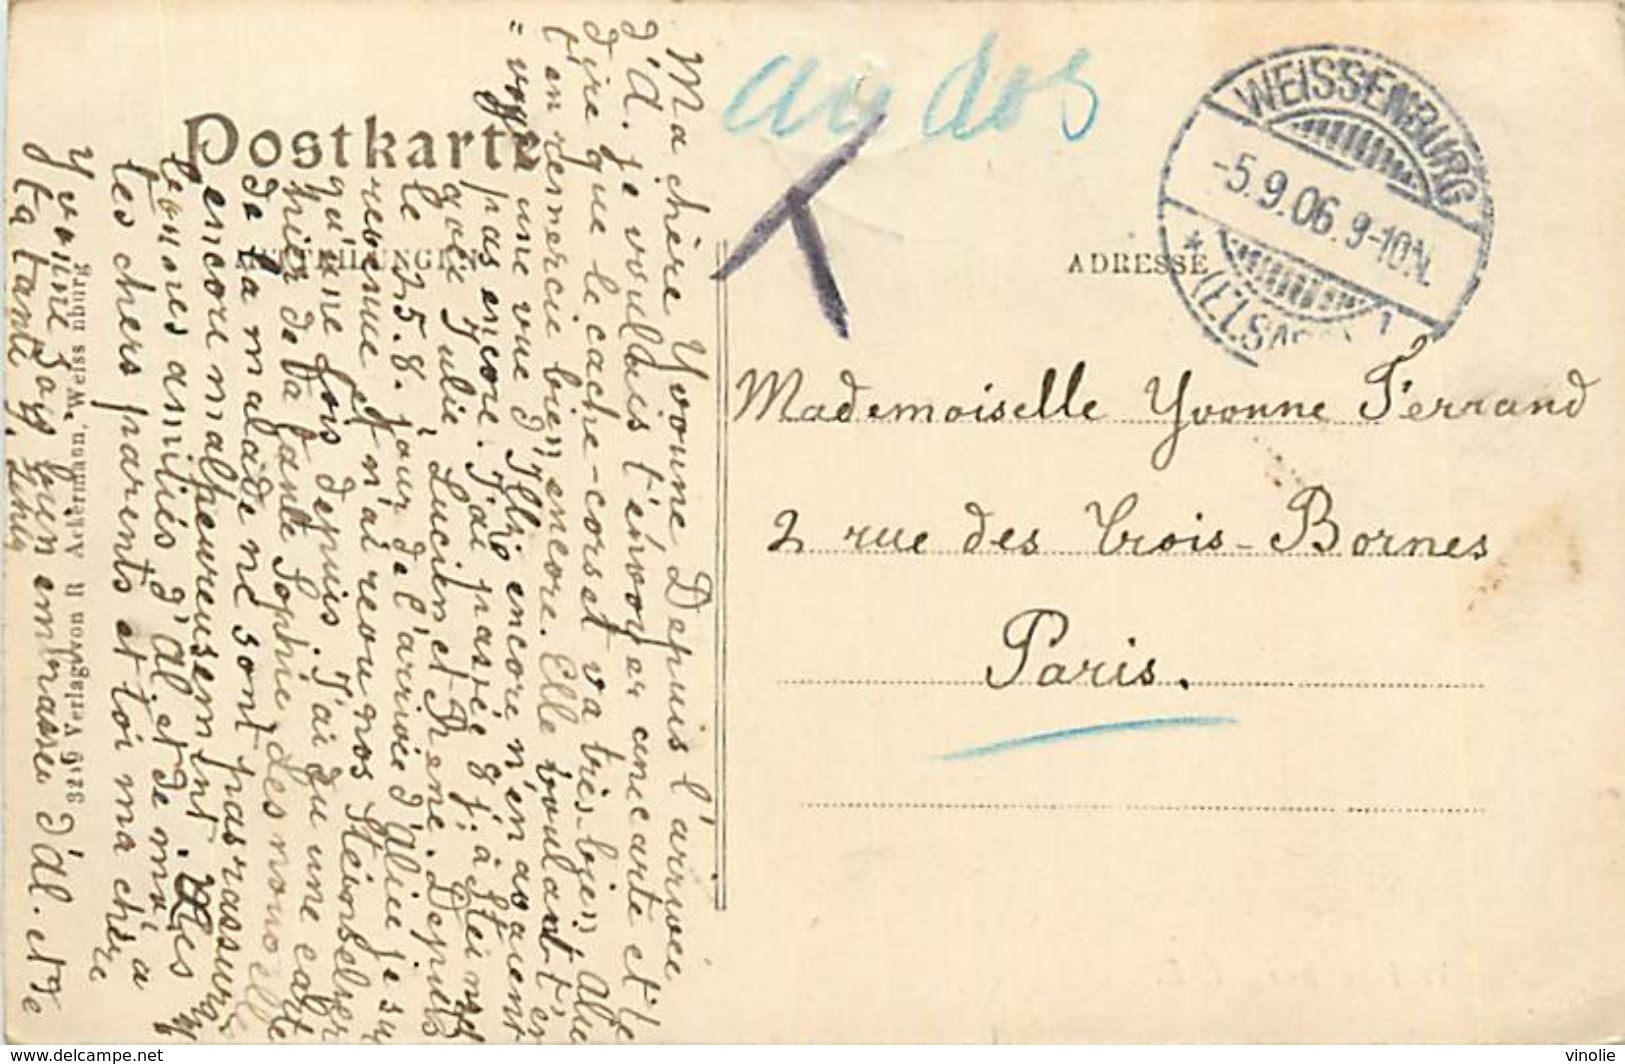 au dos
WEISSENBURG
-5.9.06. 9-10N.
* (ELSASS) 1
Postkarte
ADRESSE
Mademoiselle Yvonne Ferrand
2 rue des Trois-Bornes
Paris.
Ma chère Yvonne Depuis l'arrivée
d'A. je voulais t'envoyer une carte et te
dire que le cache-corset va très bien. Alice
t'en remercie bien encore. Elle voulait t'en
= voyer une vue d'Illz. encore n'en avaient
pas encore. J'ai passé 8 j. à Stein
avec Julie, Lucien et Irène. Depuis
le 25.8. jour de l'arrivée d'Alice je suis
revenue et n'ai revu nos Steinseltzer
qu'une fois depuis. J'ai eu une carte
hier de ta tante Sophie des nouvelles
de la malade ne sont pas rassurantes
encore malheureusement. Mes
bonnes amitiés d'Al. et de moi à
tes chers parents et toi ma chère
Yvonne sois bien embrassée d'Al. et de
ta tante Julie
3219 Verlag von R Ackermann, Weissenburg
vinolie
www.delcampe.net